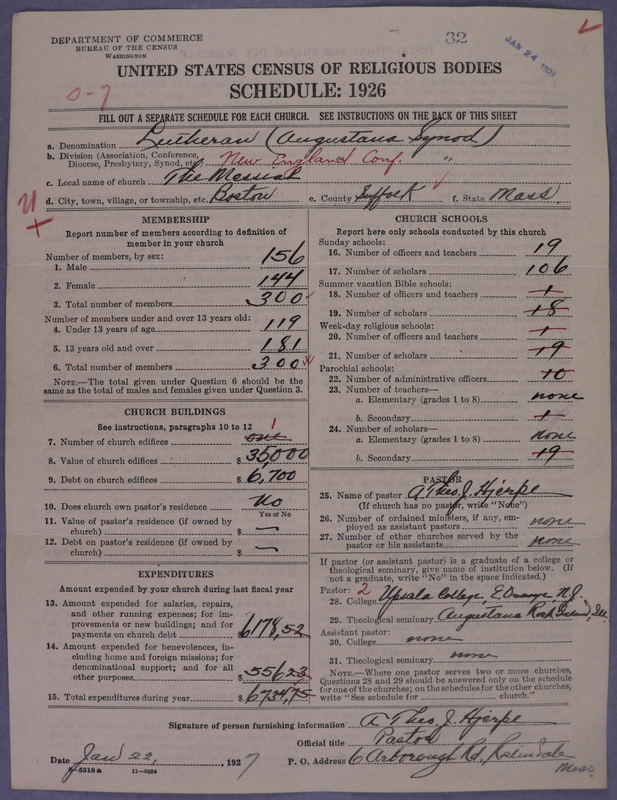 DEPARTMENT OF COMMERCE
BUREAU OF THE CENSUS
WASHINGTON
32
JAN 24
UNITED STATES CENSUS OF RELIGIOUS BODIES
SCHEDULE: 1926
0-7
FILL OUT A SEPARATE SCHEDULE FOR EACH CHURCH. SEE INSTRUCTIONS ON THE BACK OF THIS SHEET
a. Denomination Lutheran (Augustana Synod)
b. Division (Association, Conference, Diocese, Presbytery, Synod, etc.) New England Conf. "
c. Local name of church The Messiah
d. City, town, village, or township, etc. Boston e. County Suffolk f. State Mass.
MEMBERSHIP
Report number of members according to definition of
member in your church
Number of members, by sex:
1. Male 156
2. Female 144
3. Total number of members 300
Number of members under and over 13 years old:
4. Under 13 years of age 119
5. 13 years old and over 181
6. Total number of members 300
NOTE.—The total given under Question 6 should be
same as the total of males and females given under Question 3.
CHURCH BUILDINGS
See instructions, paragraphs 10 to 12
7. Number of church edifices one 1
8. Value of church edifices $ 35000
9. Debt on church edifices $ 6,700
10. Does church own pastor's residence No
Yes or No
11. Value of pastor's residence (if owned by
church) $ —
12. Debt on pastor's residence (if owned by
church) $ —
EXPENDITURES
Amount expended by your church during last fiscal year
13. Amount expended for salaries, repairs,
and other running expenses; for im-
provements or new building; and for
payments on church debt $ 6178,52
14. Amount expended for benevolences, in-
cluding home and foreign missions; for
denominational support; and for all
other purposes $ 556,23
15. Total expenditures during year $ 6734,75
CHURCH SCHOOLS
Report here only schools conducted by this church
Sunday schools:
16. Number of officers and teachers 19
17. Number of scholars 106
Summer vacation Bible schools:
18. Number of officers and teachers 1
19. Number of scholars 18
Week-day religious schools:
20. Number of officers and teachers 1
21. Number of scholars 19
Parochial schools:
22. Number of administrative officers 10
23. Number of teachers—
a. Elementary (grades 1 to 8) none
b. Secondary 1
24. Number of scholars—
a. Elementary (grades 1 to 8) none
b. Secondary 19
PASTOR
25. Name of pastor A Theo. J. Hjerpe
(If church has no pastor, write "None")
26. Number of ordained ministers, if any, em-
ployed as assistant pastors none
27. Number of other churches served by the
pastor or his assistants none
If pastor (or assistant pastor) is a graduate of a college or
theological seminary, give name of institution below. (If
not a graduate, write "No" in the space indicated.)
Pastor: 2
28. College Upsala College, E. Orange N.J.
29. Theological seminary Augustana Rock Island, Ill.
Assistant pastor:
30. College none
31. Theological seminary none
NOTE.—Where one pastor serves two or more churches,
Questions 28 and 29 should be answered only on the schedule
for one of the churches; on the schedules for the other churches,
write "See schedule for church."
Signature of person furnishing information A Theo. J. Hjerpe
Official title Pastor
Date Jan 22, 1927 P. O. Address 6 Arborough Rd, Roslindale
Mass.
8-5518a 11-9054